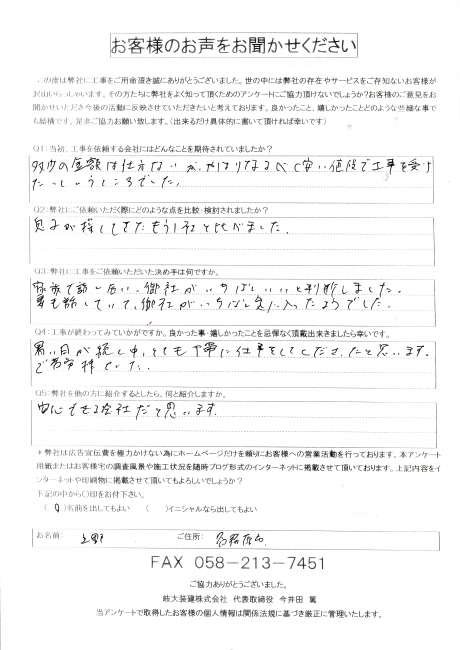 お客様のお声をお聞かせください
この度は弊社に工事をご用命頂き誠にありがとうございました。世の中には弊社の存在やサービスをご存知ないお客様が
沢山いらっしゃいます。その方たちに弊社をよく知って頂くためのアンケートにご協力頂けないでしょうか?お客様のご意見をお
聞かせいただき今後の活動に反映させていただきたいと考えております。良かったこと、嬉しかったことどのような些細な事で
も結構です。是非ご協力お願い致します。(出来るだけ具体的に書いて頂ければ幸いです)
Q1:当初、工事を依頼する会社にはどんなことを期待されていましたか?
多少の金額は仕方ないが、やはりなるべく安い値段で工事を受け
たいというところでした。
Q2:弊社にご依頼いただく際にどのような点を比較・検討されましたか?
息子が探してきたもう1社と比べました。
Q3:弊社に工事をご依頼いただいた決め手は何ですか。
家族で話し合い、御社がいちばんいいと判断しました。
妻も話していて、御社がいちばん気に入ったようでした。
Q4:工事が終わってみていかがですか。良かった事・嬉しかったことを忌憚なく頂戴出来ましたら幸いです。
暑い日が続く中、とても丁寧に仕事をしてくださったと思います。
ご苦労様でした。
Q5:弊社を他の方に紹介するとしたら、何と紹介しますか。
安心もてる会社だと思います。
*弊社は広告宣伝費を極力かけない為にホームページだけを頼りにお客様への営業活動を行っております。本アンケート
用紙またはお客様宅の調査風景や施工状況を随時ブログ形式のインターネットに掲載させて頂いております。上記内容をイ
ンターネットや印刷物に掲載させて頂いてもよろしいでしょうか?
下記の中から○印をお付下さい。
(○)名前を出してもよい ( )イニシャルなら出してもよい
お名前: 上野 ご住所: 各務原市
FAX 058-213-7451
ご協力ありがとうございました。
岐大装建株式会社 代表取締役 今井田 篤
当アンケートで取得したお客様の個人情報は関係法規に基づき厳正に管理いたします。